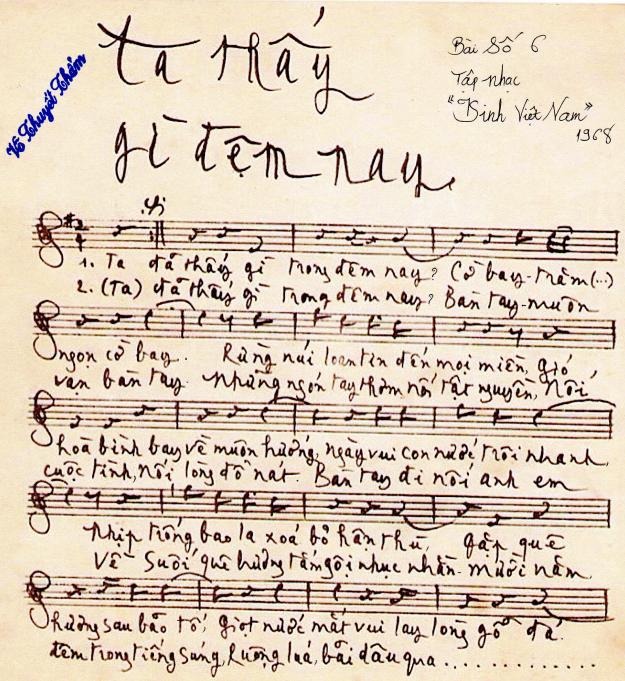 Vũ Thuyết Thảm
Ta thấy
gì đêm nay
Bài Số 6
Tập nhạc
"Kinh Việt Nam"
1968
2
4
1. Ta đã thấy gì trong đêm nay? Cờ bay trăm (...)
2. (Ta) đã thấy gì trong đêm nay? Bàn tay muôn
ngọn cờ bay. Rừng núi loan tin đến mọi miền, gió
vạn bàn tay. Những ngón tay thơm nối tật nguyền, Nối
hoà bình bay về muôn hướng, ngày vui con nước trôi nhanh,
cuộc tình, nối lòng đổ nát. Bàn tay đi nối anh em
nhịp trống bao la xoá bỏ hận thù, gặp quê
Về suối quê hương tắm gội nhục nhằn. Mười năm,
hương sau bão tố, Giọt nước mắt vui lay lòng gỗ đá.
đêm trong tiếng súng, Ruộng lúa, bãi dâu qua ............